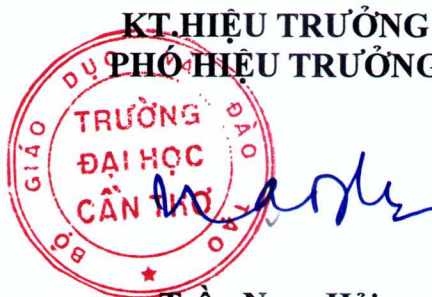 KT.HIỆU TRƯỞNG
PHÓ HIỆU TRƯỞNG
BỘ GIÁO DỤC VÀ ĐÀO TẠO
TRƯỜNG
ĐẠI HỌC
CẦN THƠ